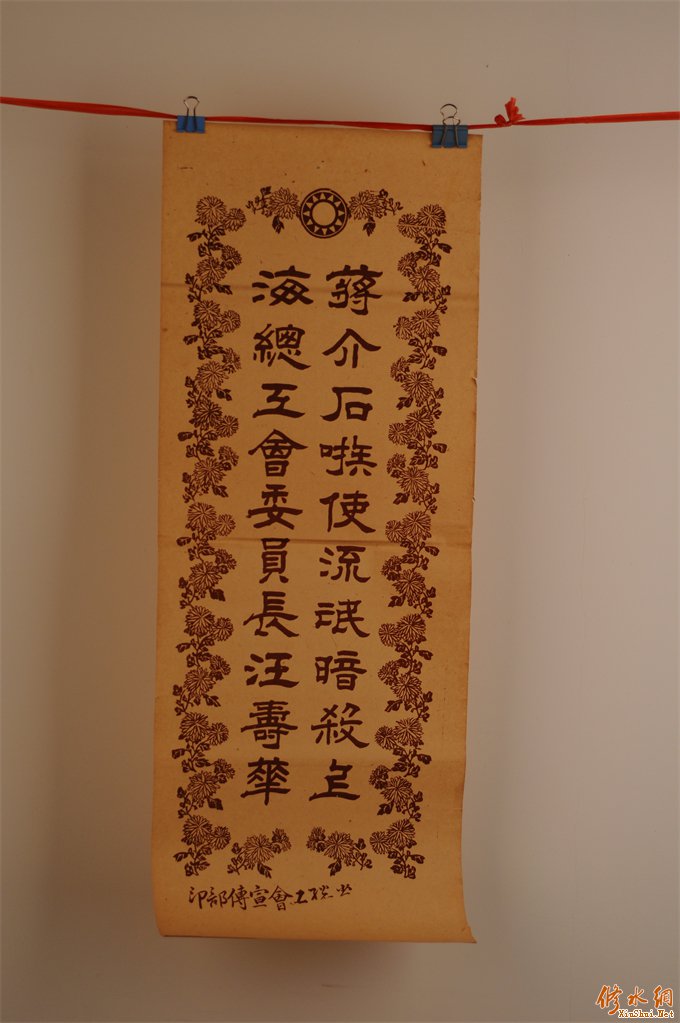 蔣介石嗾使流氓暗殺上
海總工會委員長汪壽華
上總工會宣傳部印
修水網
XiuShui.Net